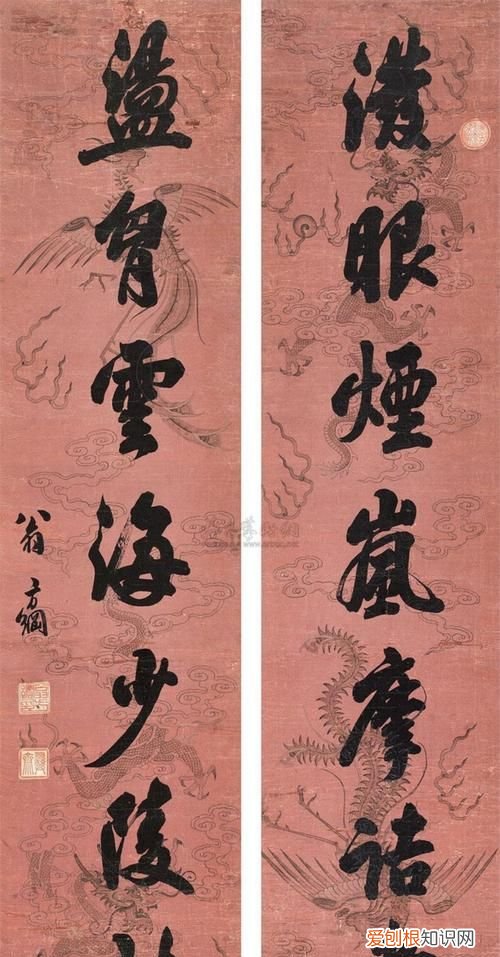 潑眼煙嵐摩詰
盪胷雲海少陵
翁方綱
爱刨根知识网